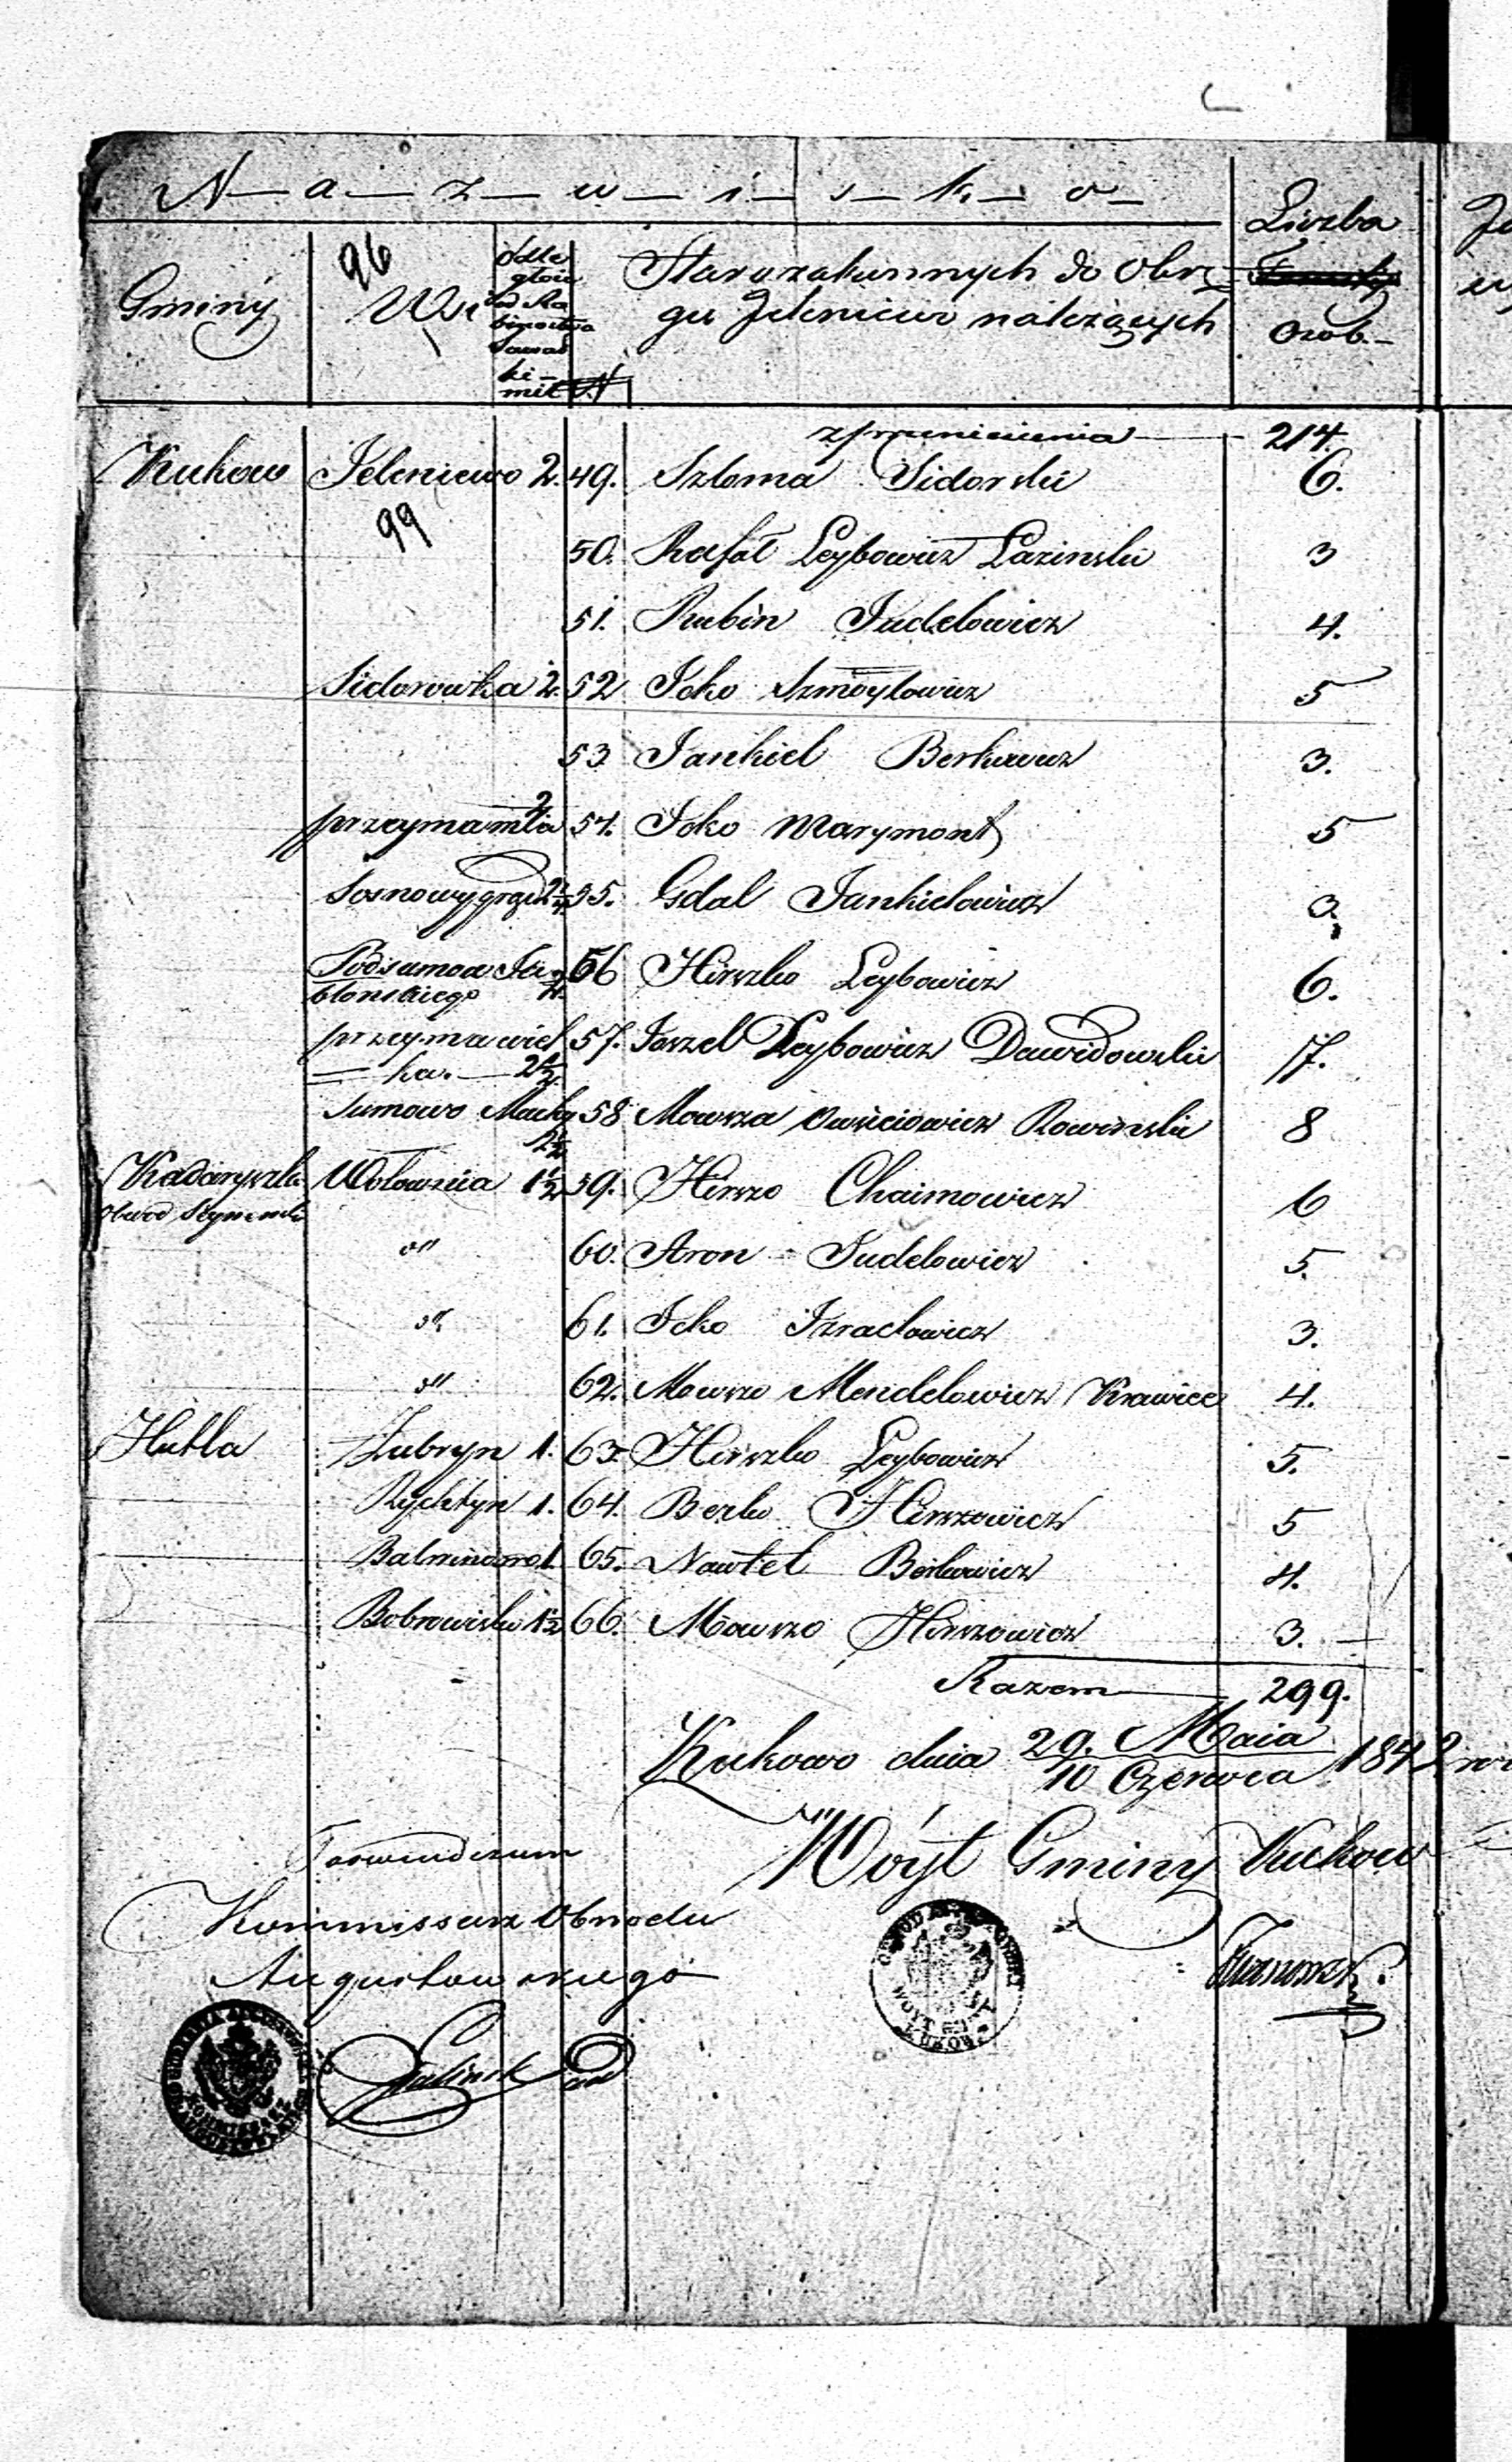 N a z w i s k o
Liczba
Gminy
96
Wsi
Odle
głość
od Ra
binostwa
Suwał
ki
mil
N
Starozakonnych do Okrę
gu Jeleniewo należących
Osób.
z przeniesienia 214.
Kukow Jeleniewo 2. 49. Szloma Sidorski 6.
99
50. Rafał Leybowicz Lazinski 3
51. Rubin Judelowicz 4.
Sidorowka 2. 52 Icko Szmoylowicz 5
53 Jankiel Berkowicz 3.
przeyma mła 2 54. Icko Marymont 5
Sosnowy grąd 2 1/4 55. Gdal Jankielowicz 3
Podsumowa Ja
błonskiego 2 56 Hirszko Leybowicz 6.
przeyma wiel 57. Joszel Leybowicz Dawidowski 17.
ka. 2 1/2
Sumowo Mucky 58 Mowsza Owsieiowicz Rowinski 8
2 1/2
Kadaryszki Wołownia 1 1/2 59. Hirszo Chaimowicz 6
Obwod Seynenski
" 60. Aron Judelowicz 5.
" 61. Icko Izraelowicz 3.
" 62. Mowszo Mendelowicz Krawiec 4.
Hutta Żubryn 1. 63. Hirszko Leybowicz 5.
Rychtyn 1. 64. Berko Hirszowicz 5
Balinowo 1. 65. Nawtel Berkowicz 4.
Bobrowisko 1 1/2 66. Mowszo Hirszowicz 3.
Razem 299.
Kukowo dnia 29. Maia
10 Czerwca 1842
Wóyt Gminy Kukow
Kommissarz Obwodu
Augustowskiego